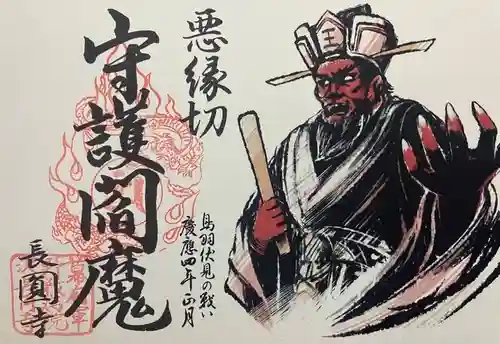 悪縁切
守護閻魔
鳥羽伏見の戦い
慶應四年正月
長圓寺
王